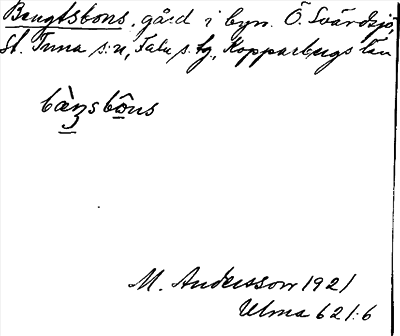 Bengtsbons, gård i byn Ö. Svärdsjö,
St. Tuna s:n, Falu s. tg, Kopparbergs län
bàŋsbôns
M. Andersson 1921
Ulma 621:6